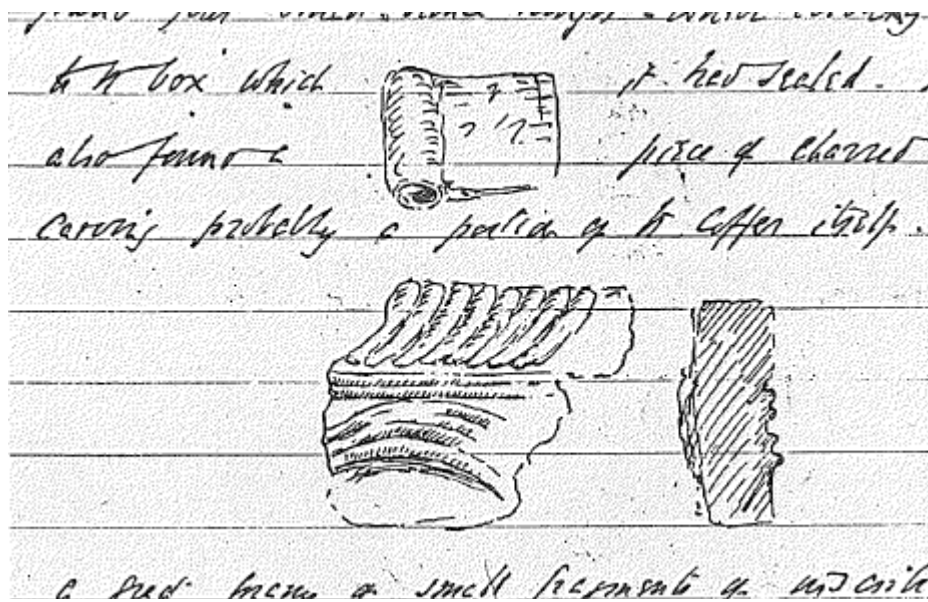 found four small bronze
to the box which it had sealed. I
also found a piece of charred
carving probably a portion of the coffer itself.
a great many small fragments of